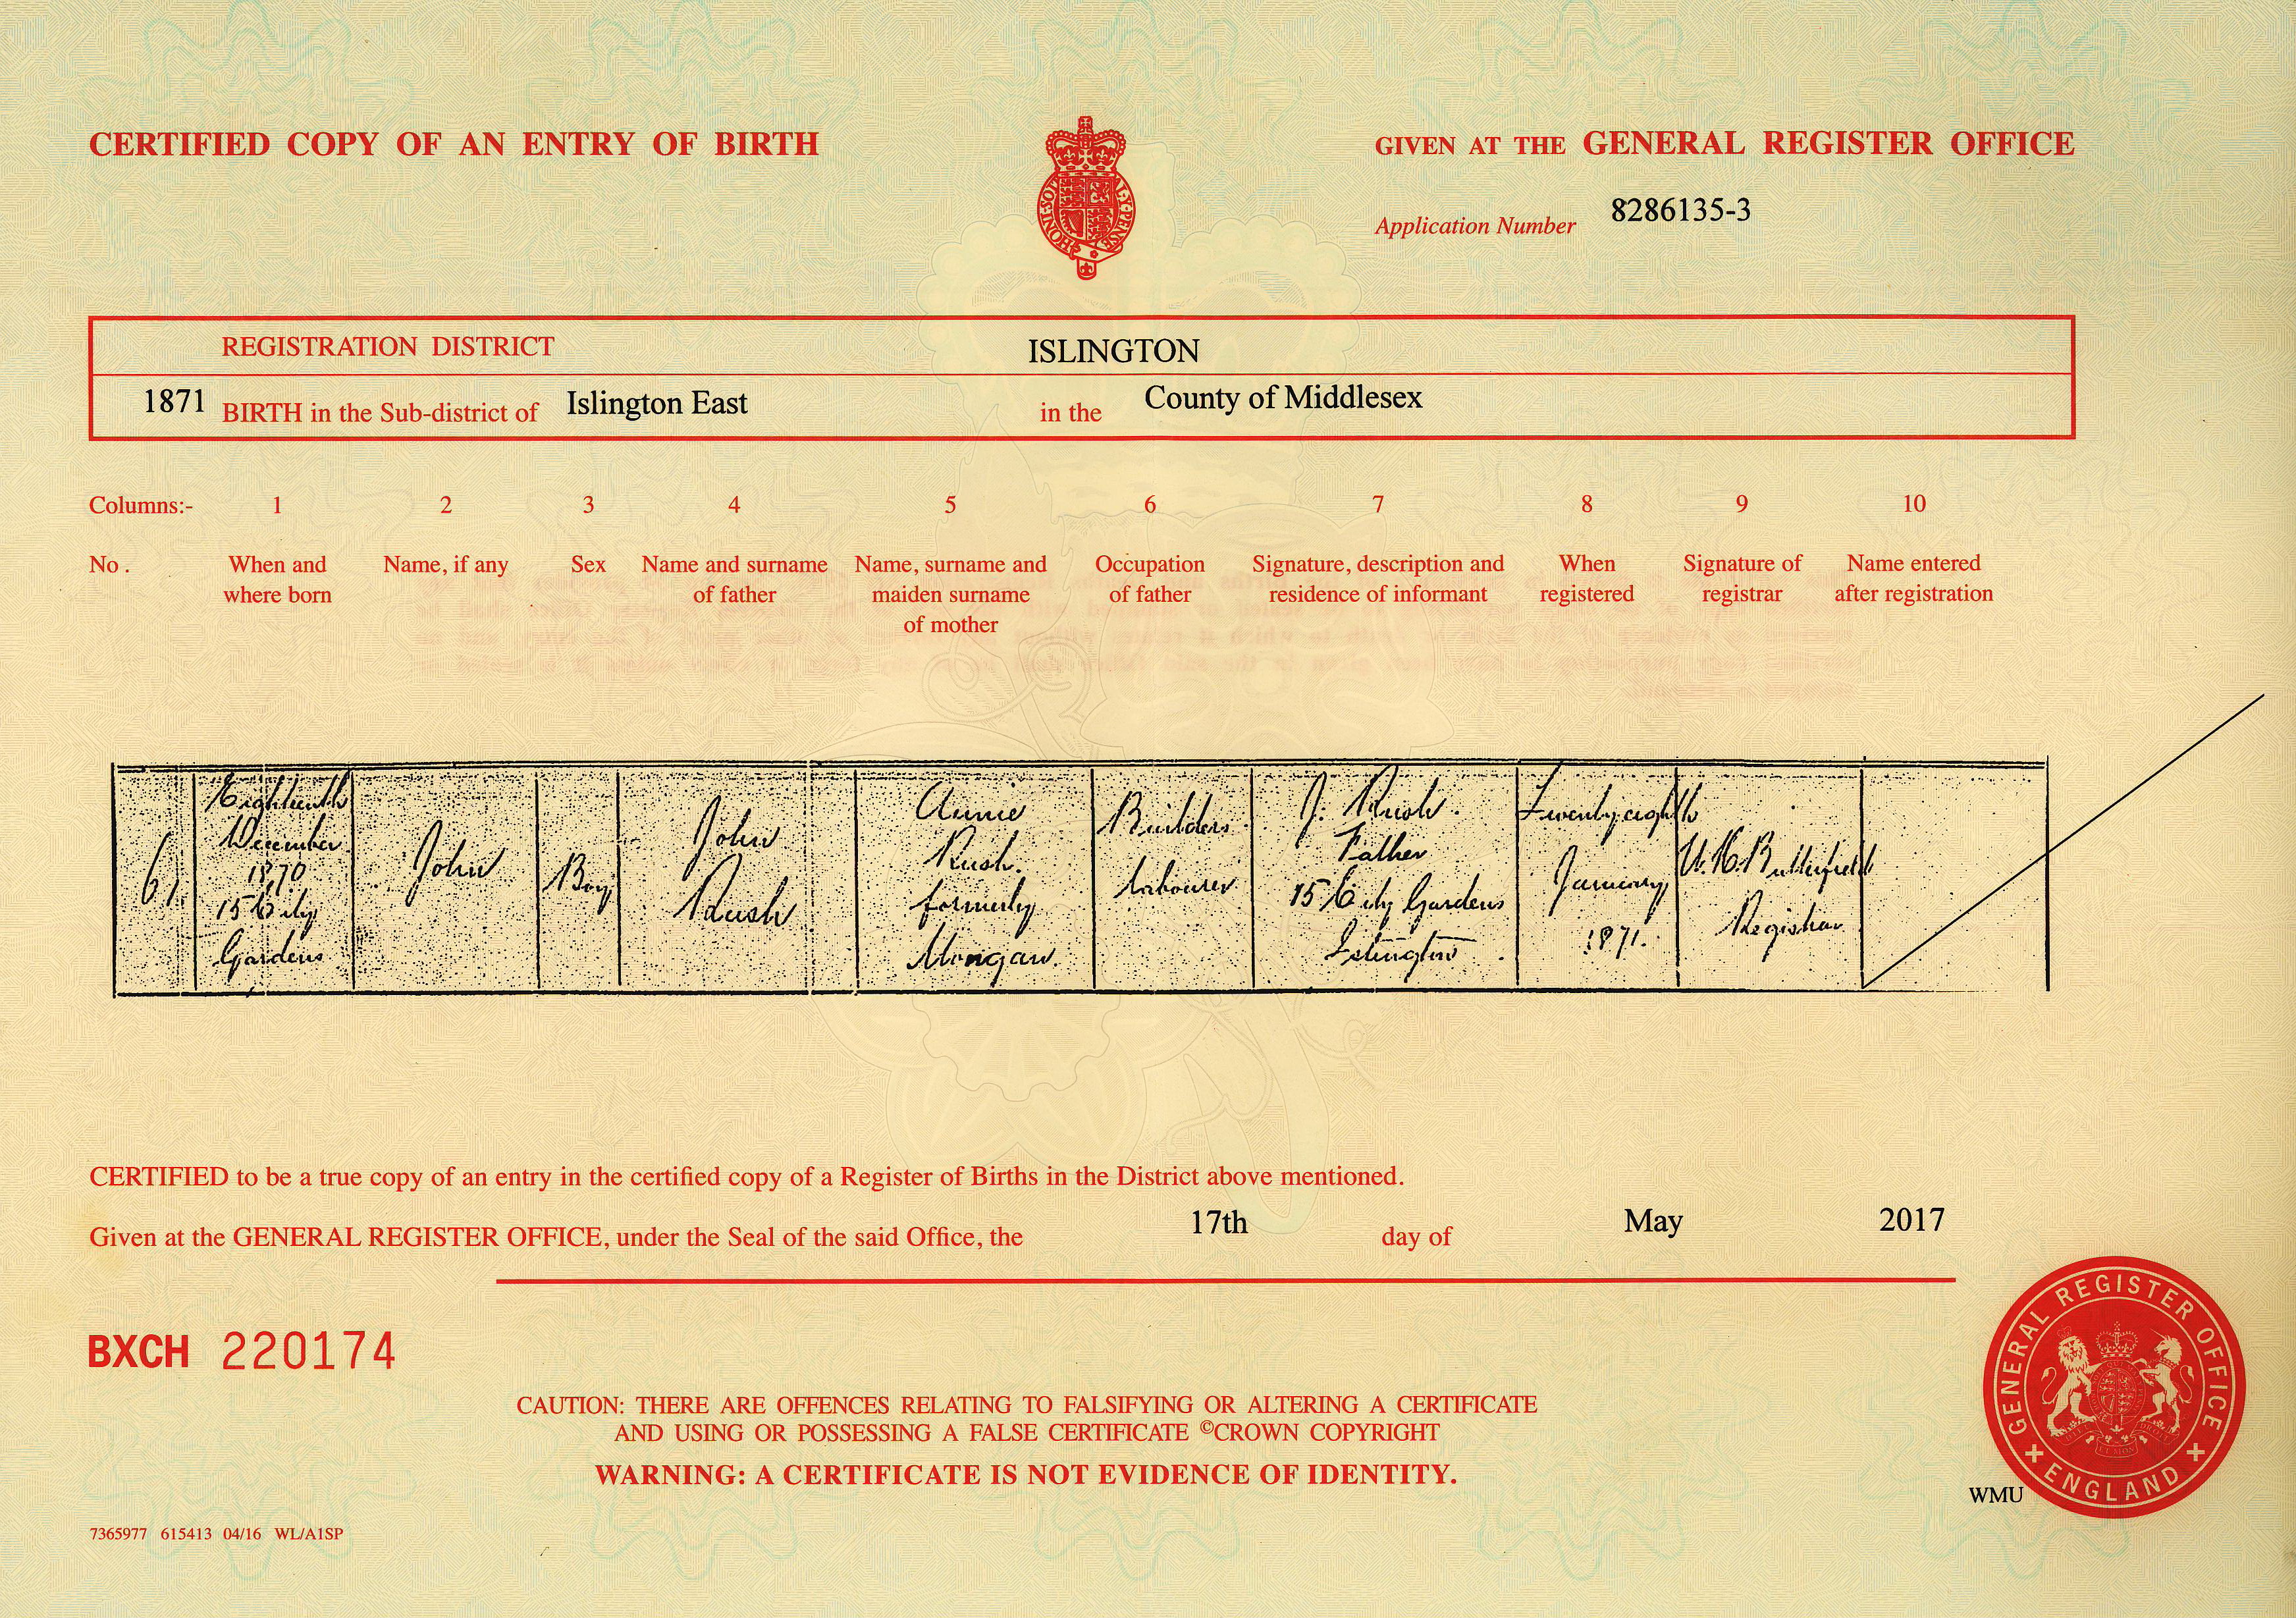 CERTIFIED COPY OF AN ENTRY OF BIRTH
GIVEN AT THE GENERAL REGISTER OFFICE
HONI·SOIT
Application Number 8286135-3
REGISTRATION DISTRICT ISLINGTON
1871 BIRTH in the Sub-district of Islington East in the County of Middlesex
Columns:- 1 2 3 4 5 6 7 8 9 10
No. When and where born
Name, if any
Sex
Name and surname of father
Name, surname and maiden surname of mother
Occupation of father
Signature, description and residence of informant
When registered
Signature of registrar
Name entered after registration
61.
Eighteenth
December
1870
15 City
Gardens
John
Boy
John
Rush
Annie
Rush.
formerly
Mongan.
Builders
labourer
J. Rush.
Father
15 City Gardens
Islington
Twenty eighth
January
1871.
Butterfield
Registrar
CERTIFIED to be a true copy of an entry in the certified copy of a Register of Births in the District above mentioned.
Given at the GENERAL REGISTER OFFICE, under the Seal of the said Office, the 17th day of May 2017
BXCH 220174
CAUTION: THERE ARE OFFENCES RELATING TO FALSIFYING OR ALTERING A CERTIFICATE
AND USING OR POSSESSING A FALSE CERTIFICATE ©CROWN COPYRIGHT
WARNING: A CERTIFICATE IS NOT EVIDENCE OF IDENTITY.
GENERAL REGISTER OFFICE
ENGLAND
WMU
7365977 615413 04/16 WL/A1SP